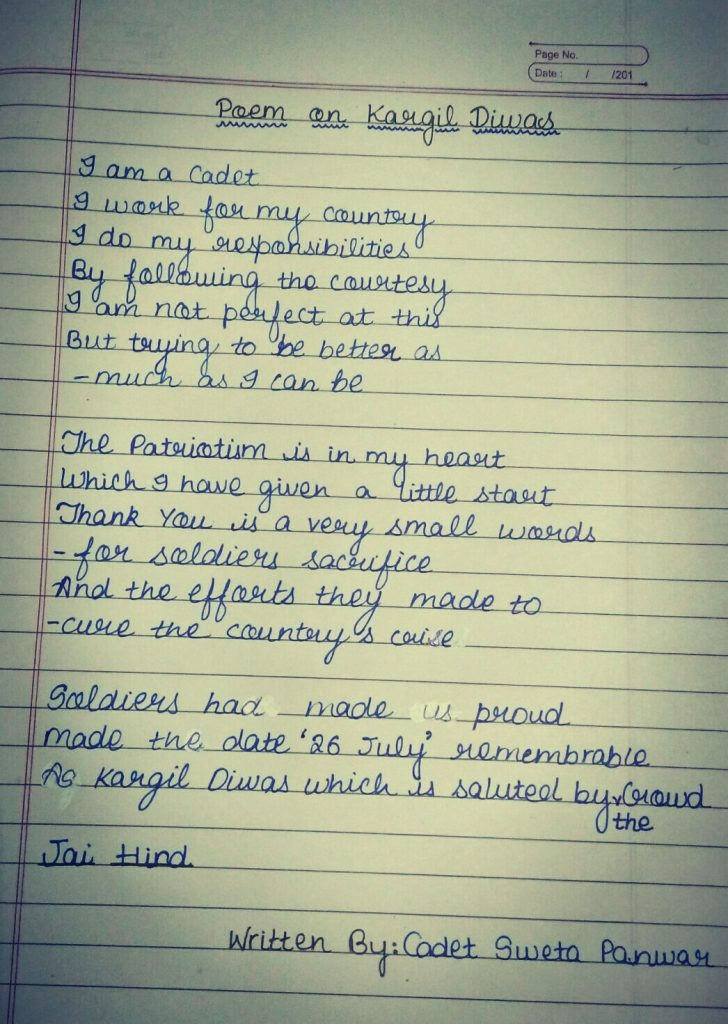 Page No.
Date : / /201
Poem on Kargil Diwas
I am a Cadet
I work for my country
I do my responsibilities
By following the courtesy
I am not perfect at this
But trying to be better as
-much as I can be
The Patriotism is in my heart
Which I have given a little start
Thank You is a very small words
-for soldiers sacrifice
And the efforts they made to
-cure the country's crise
Soldiers had made us proud
made the date '26 July' remembrable
As Kargil Diwas which is saluted by Crowd
the
Jai Hind
Written By: Cadet Sweta Panwar